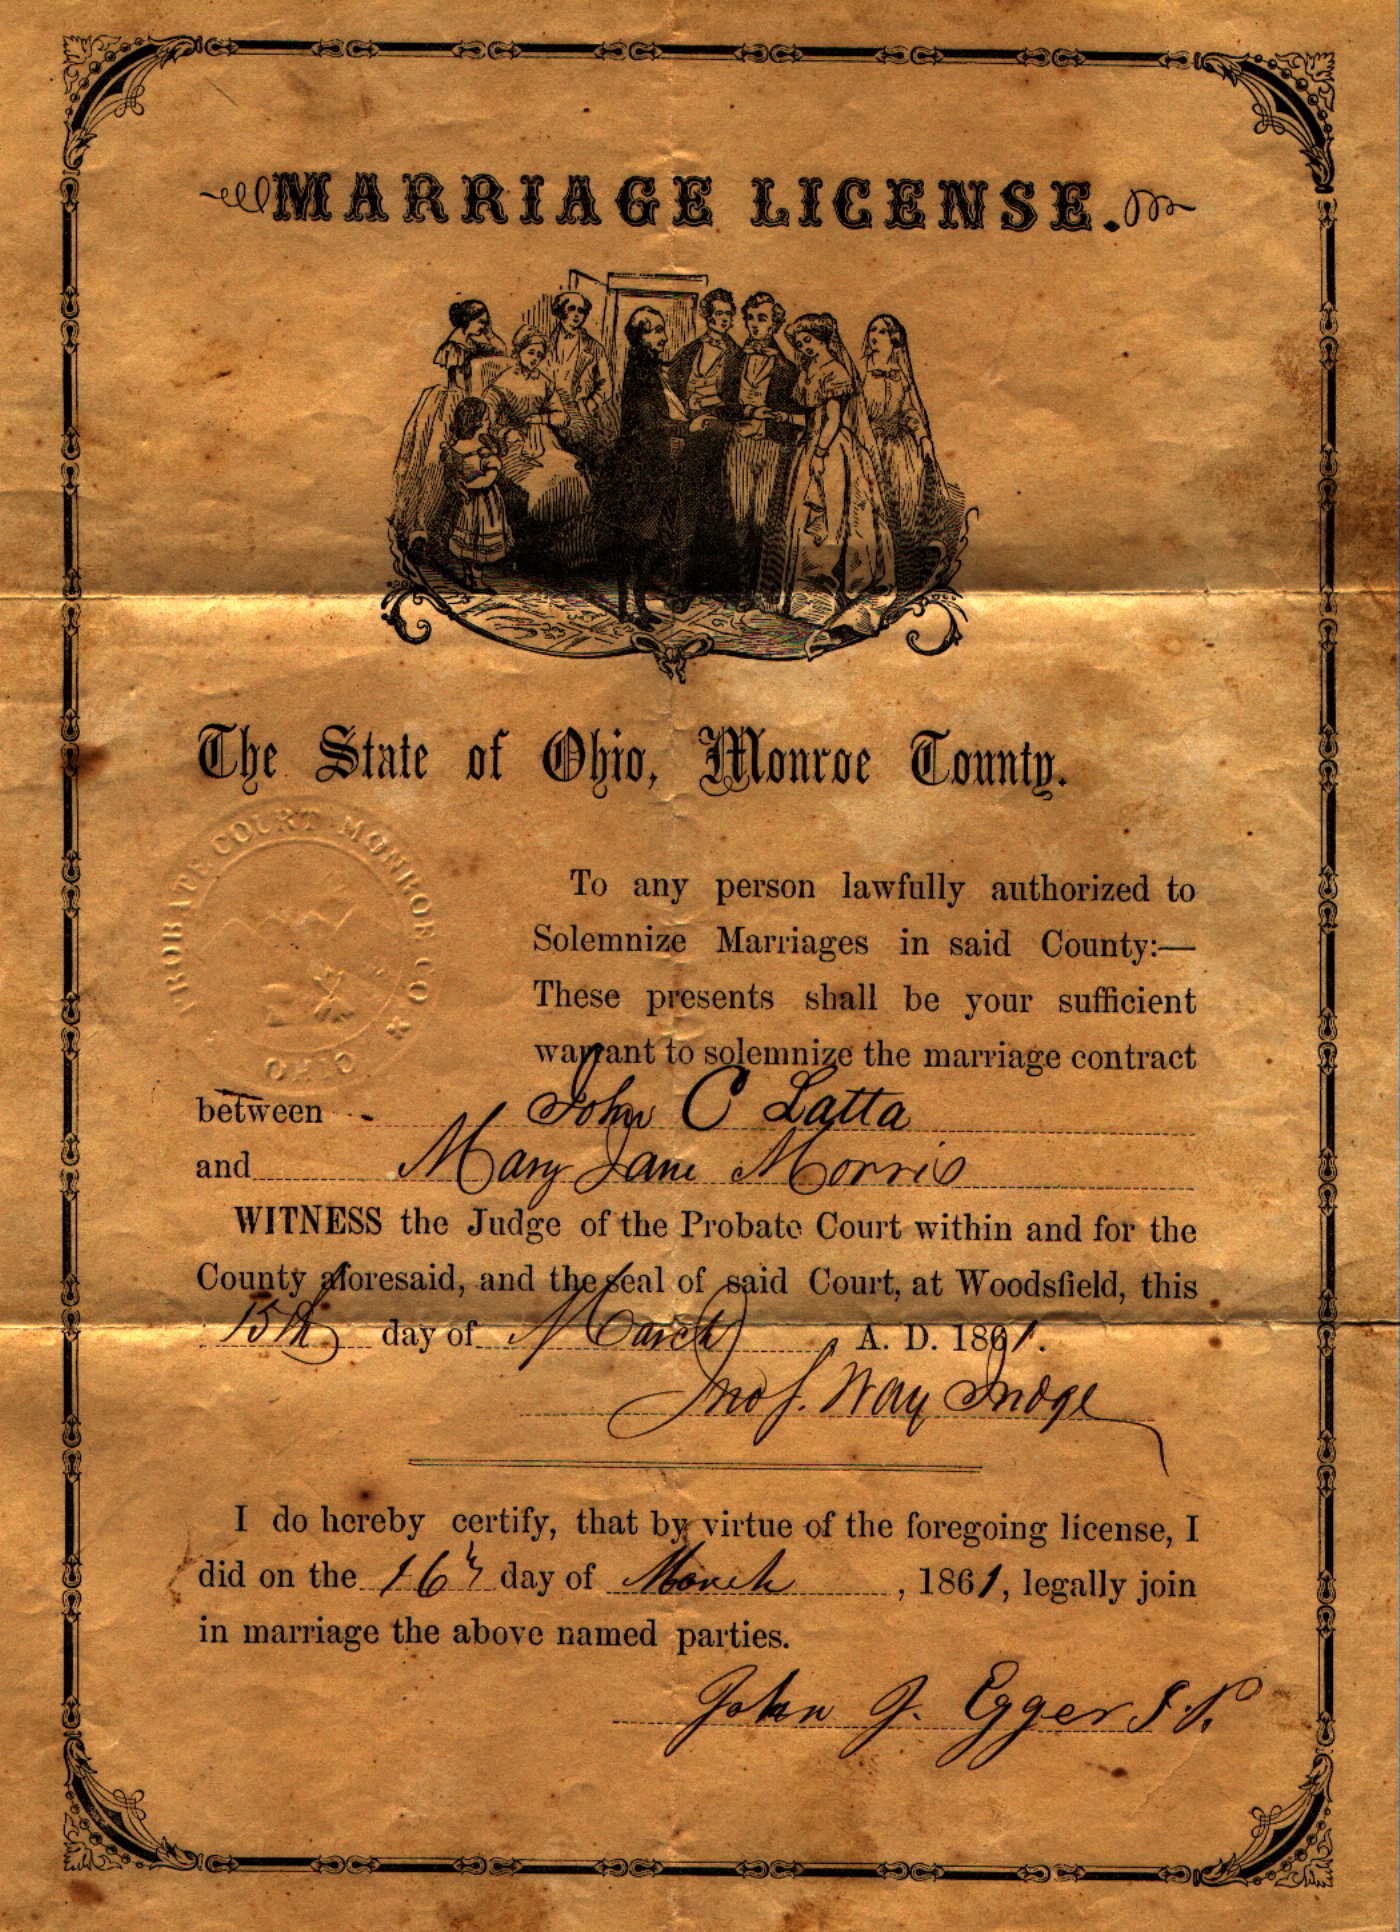 MARRIAGE LICENSE.
The State of Ohio, Monroe County.
PROBATE COURT MONROE CO
OHIO
To any person lawfully authorized to
Solemnize Marriages in said County:—
These presents shall be your sufficient
warrant to solemnize the marriage contract
between John C Latta
and Mary Jane Morris
WITNESS the Judge of the Probate Court within and for the
County aforesaid, and the seal of said Court, at Woodsfield, this
15th day of March A. D. 1861.
Jno S. Way Judge
I do hereby certify, that by virtue of the foregoing license, I
did on the 16th day of March, 1861, legally join
in marriage the above named parties.
John J. Egger J. P.